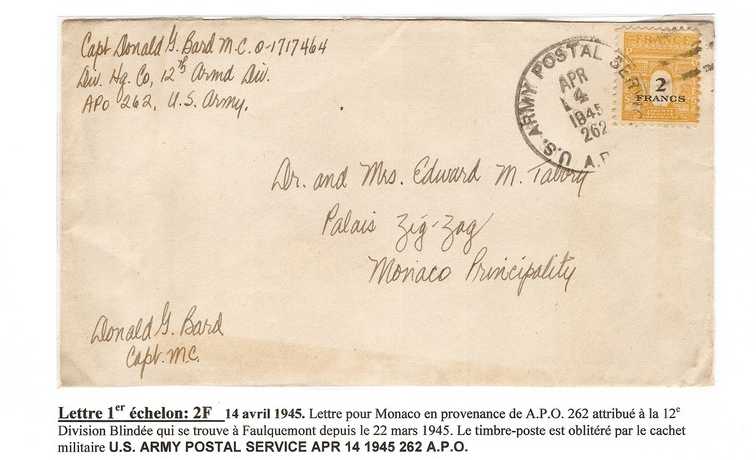 Capt Donald G. Bard M.C. O-1717464
Div. Hq. Co, 12th Armd Div.
APO 262, U.S. Army.
U.S. ARMY POSTAL SERVICE
APR
14
1945
262
A.P.
FRANCE
2
FRANCS
Dr. and Mrs. Edward M. Tabry
Palais Zig-Zag
Monaco Principality
Donald G. Bard
Capt. M.C.
Lettre 1er échelon: 2F 14 avril 1945. Lettre pour Monaco en provenance de A.P.O. 262 attribué à la 12e
Division Blindée qui se trouve à Faulquemont depuis le 22 mars 1945. Le timbre-poste est oblitéré par le cachet
militaire U.S. ARMY POSTAL SERVICE APR 14 1945 262 A.P.O.